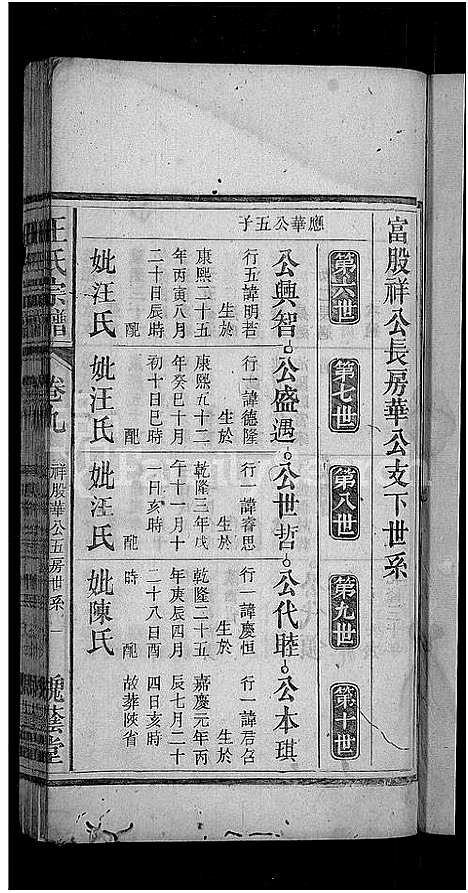 富股祥公長房華公支下世系
第六世
第七世
第八世
第九世
第十世
應華公五子
公興智
行五諱明若
生於
康熙二十五
年丙寅八月
二十日辰時
配
妣汪氏
公盛遇
行一諱德隆
生於
康熙五十二
年癸巳十月
初十日巳時
配
妣汪氏
公世哲
行一諱睿思
生於
乾隆三年戊
午十一月十
一日亥時
配
妣汪氏
公代睦
行一諱慶恒
生於
乾隆二十五
年庚辰四月
二十八日酉
時
配
妣陳氏
公本琪
行一諱君召
生於
嘉慶元年丙
辰七月二十
四日亥時
故葬陝省
王氏宗譜
卷九
祥股華公五房世系
一
槐蔭堂